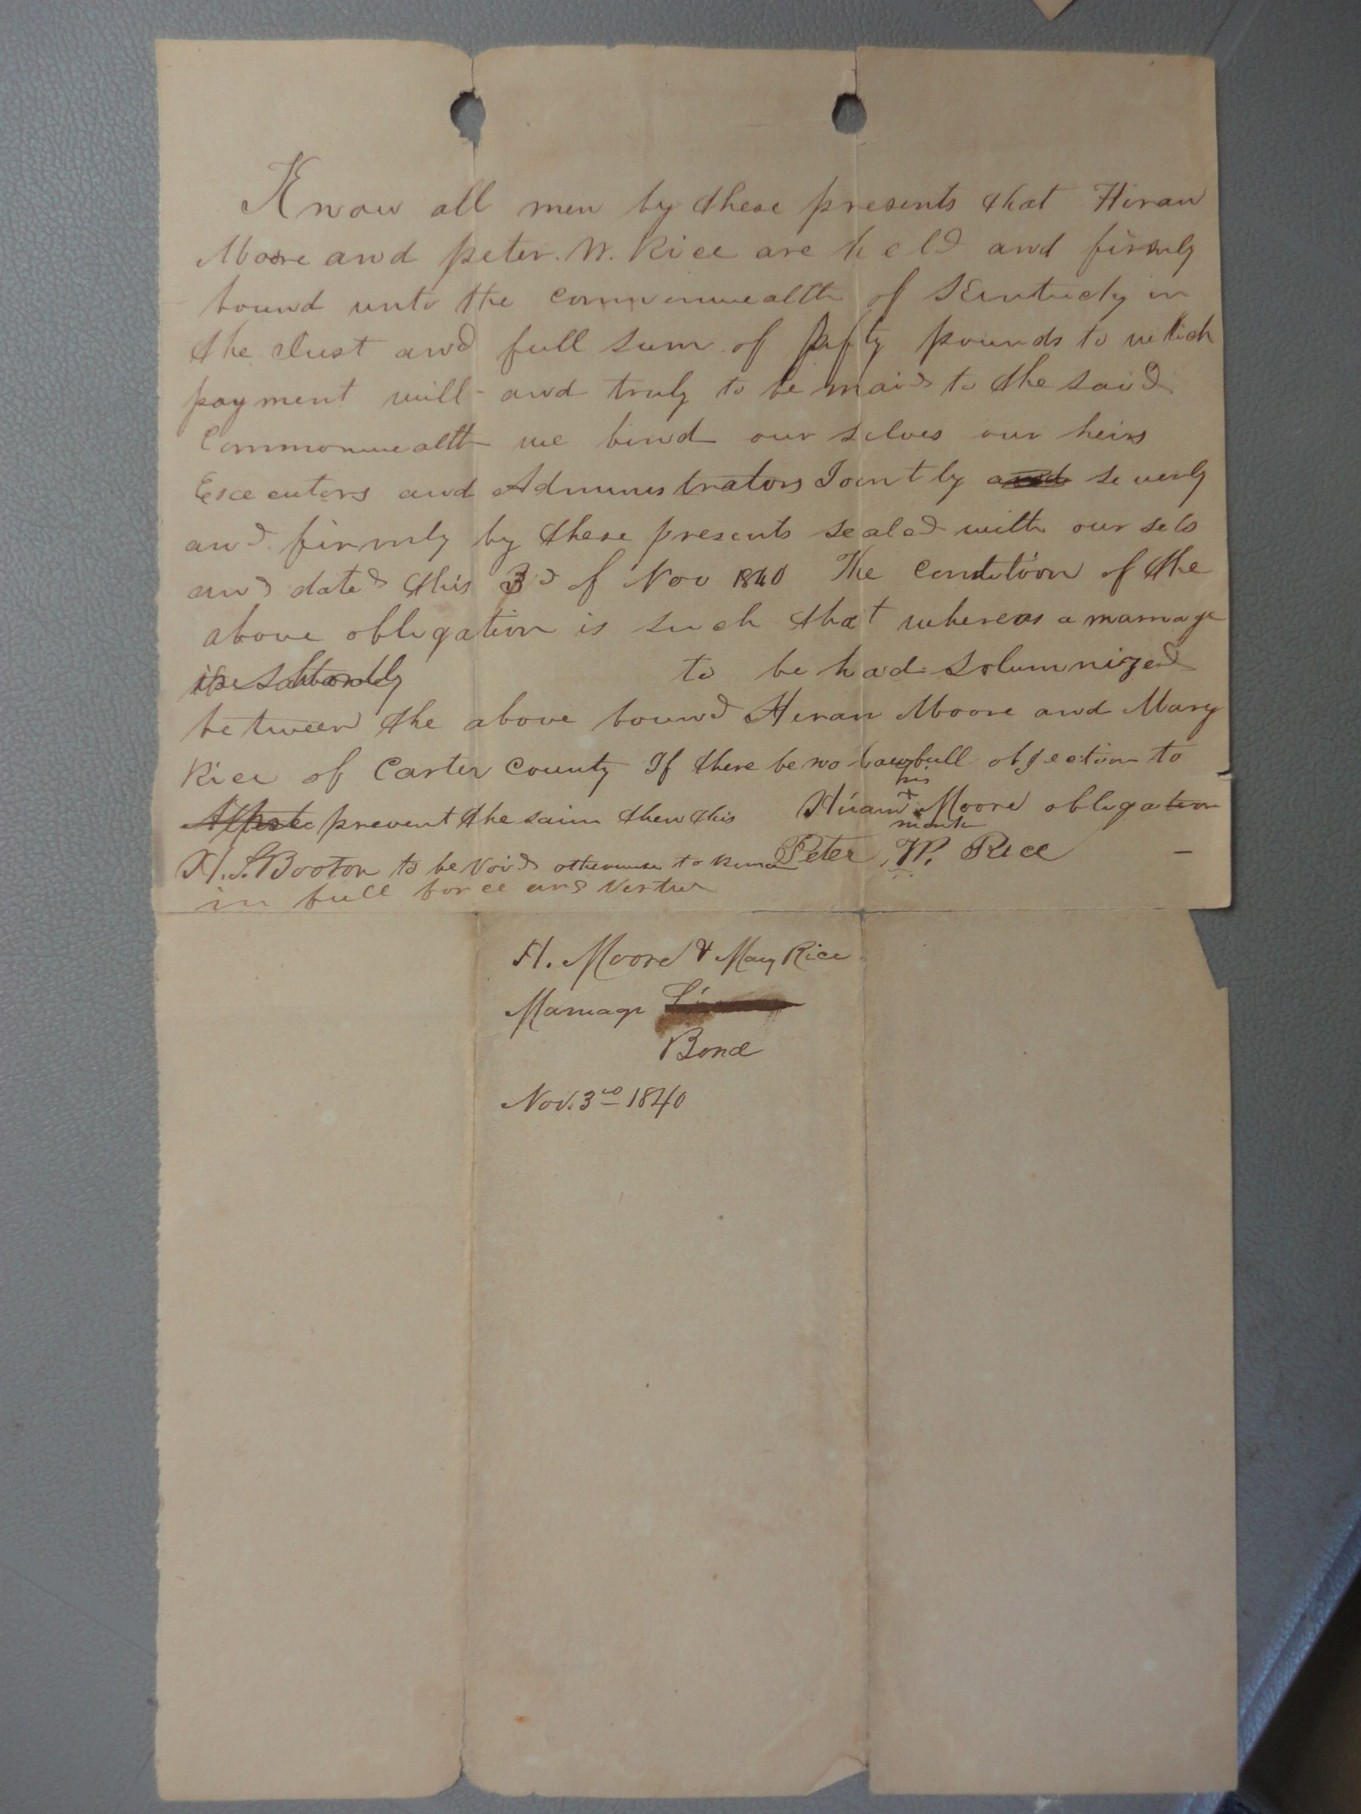 Know all men by these presents that Hiram
Moore and peter. W. Rice are held and firmly
bound unto the commonwealth of Kentucky in
the Just and full sum of fifty pounds to which
payment will and truly to be maid to the said
Commonwealth we bind our selves our heirs
Executors and Administrators Jointly and severly
and firmly by these presents sealed with our sels
and dated this 3d of Nov 1840 The condition of the
above obligation is such that whereas a marriage
is shortly to be had solumnized
between the above bound Hiram Moore and Mary
Rice of Carter County If there be no lawfull objection to
his
prevent the saim then this Hiram + Moore obligation
mark
H. S. Booton to be void otherwise to remain Peter W. Rice
in full force and vertue
H. Moore & Mary Rice
Marriage
Bond
Nov. 3rd 1840